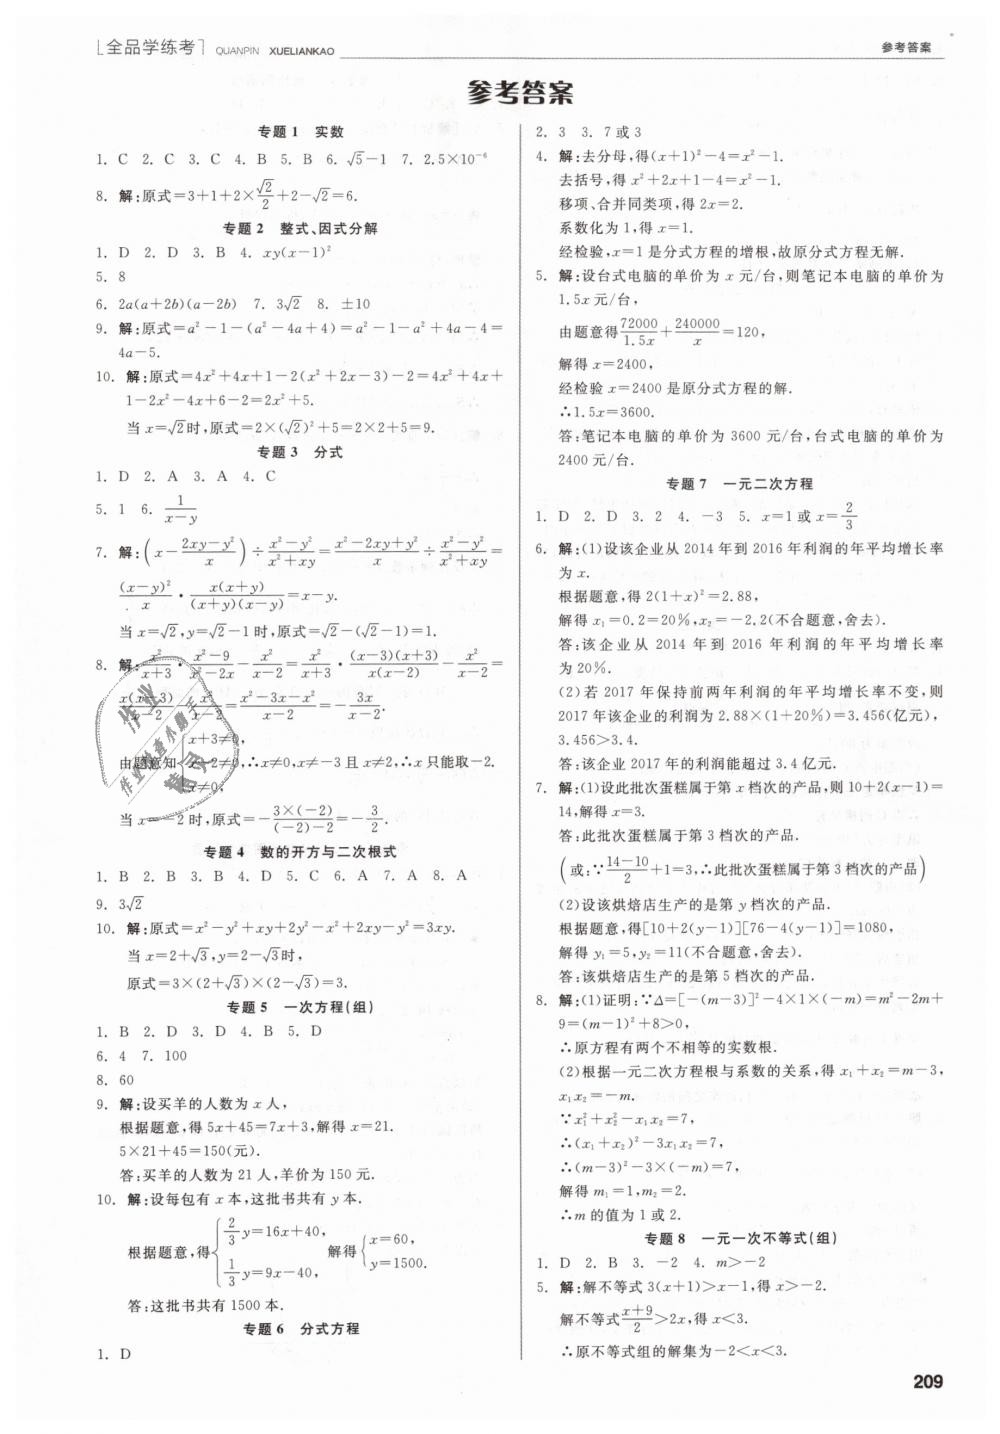 全品学练考 QUANPIN XUELIANKAO
参考答案
参考答案
专题1 实数
1. C 2. C 3. C 4. B 5. B 6. √5-1 7. 2.5×10⁻⁶
8. 解:原式=3+1+2×√2/2+2-√2=6.
专题2 整式、因式分解
1. D 2. D 3. B 4. xy(x-1)²
5. 8
6. 2a(a+2b)(a-2b) 7. 3√2 8. ±10
9. 解:原式=a²-1-(a²-4a+4)=a²-1-a²+4a-4=
4a-5.
10. 解:原式=4x²+4x+1-2(x²+2x-3)-2=4x²+4x+
1-2x²-4x+6-2=2x²+5.
当x=√2时,原式=2×(√2)²+5=2×2+5=9.
专题3 分式
1. D 2. A 3. A 4. C
5. 1 6. 1/(x-y)
7. 解:(x-(2xy-y²)/x)÷(x²-y²)/(x²+xy)=(x²-2xy+y²)/x÷(x²-y²)/(x²+xy)=
(x-y)²/x·x(x+y)/((x+y)(x-y))=x-y.
当x=√2,y=√2-1时,原式=√2-(√2-1)=1.
8. 解:x²/(x+3)·(x²-9)/(x²-2x)-x²/(x-2)=x²/(x+3)·(x-3)(x+3)/(x(x-2))-x²/(x-2)=
x(x-3)/(x-2)-x²/(x-2)=(x²-3x-x²)/(x-2)=-3x/(x-2).
由题意知{x+3≠0, x-2≠0, x≠0,∴x≠0,x≠-3且x≠2,∴x只能取-2.
当x=-2时,原式=-3×(-2)/((-2)-2)=-3/2.
专题4 数的开方与二次根式
1. B 2. B 3. B 4. D 5. C 6. A 7. A 8. A
9. 3√2
10. 解:原式=x²-y²+xy+2y²-x²+2xy-y²=3xy.
当x=2+√3,y=2-√3时,
原式=3×(2+√3)×(2-√3)=3.
专题5 一次方程(组)
1. B 2. D 3. D 4. B 5. D
6. 4 7. 100
8. 60
9. 解:设买羊的人数为x人,
根据题意,得5x+45=7x+3,解得x=21.
5×21+45=150(元).
答:买羊的人数为21人,羊价为150元.
10. 解:设每包有x本,这批书共有y本.
根据题意,得{2/3y=16x+40, 1/3y=9x-40, 解得{x=60, y=1500.
答:这批书共有1500本.
专题6 分式方程
1. D
2. 3 3. 7或3
4. 解:去分母,得(x+1)²-4=x²-1.
去括号,得x²+2x+1-4=x²-1.
移项、合并同类项,得2x=2.
系数化为1,得x=1.
经检验,x=1是分式方程的增根,故原分式方程无解.
5. 解:设台式电脑的单价为x元/台,则笔记本电脑的单价为
1.5x元/台,
由题意得72000/1.5x+240000/x=120,
解得x=2400,
经检验x=2400是原分式方程的解.
∴1.5x=3600.
答:笔记本电脑的单价为3600元/台,台式电脑的单价为
2400元/台.
专题7 一元二次方程
1. D 2. D 3. 2 4. -3 5. x=1或x=2/3
6. 解:(1)设该企业从2014年到2016年利润的年平均增长率
为x.
根据题意,得2(1+x)²=2.88,
解得x₁=0.2=20%,x₂=-2.2(不合题意,舍去).
答:该企业从2014年到2016年利润的年平均增长率
为20%.
(2)若2017年保持前两年利润的年平均增长率不变,则
2017年该企业的利润为2.88×(1+20%)=3.456(亿元),
3.456>3.4.
答:该企业2017年的利润能超过3.4亿元.
7. 解:(1)设此批次蛋糕属于第x档次的产品,则10+2(x-1)=
14,解得x=3.
答:此批次蛋糕属于第3档次的产品.
(或:∵(14-10)/2+1=3,∴此批次蛋糕属于第3档次的产品)
(2)设该烘焙店生产的是第y档次的产品.
根据题意,得[10+2(y-1)][76-4(y-1)]=1080,
解得y₁=5,y₂=11(不合题意,舍去).
答:该烘焙店生产的是第5档次的产品.
8. 解:(1)证明:∵Δ=[-(m-3)]²-4×1×(-m)=m²-2m+
9=(m-1)²+8>0,
∴原方程有两个不相等的实数根.
(2)根据一元二次方程根与系数的关系,得x₁+x₂=m-3,
x₁x₂=-m.
∵x₁²+x₂²-x₁x₂=7,
∴(x₁+x₂)²-3x₁x₂=7,
∴(m-3)²-3×(-m)=7,
解得m₁=1,m₂=2.
∴m的值为1或2.
专题8 一元一次不等式(组)
1. D 2. B 3. -2 4. m>-2
5. 解:解不等式3(x+1)>x-1,得x>-2.
解不等式(x+9)/2>2x,得x<3.
∴原不等式组的解集为-2<x<3.
209